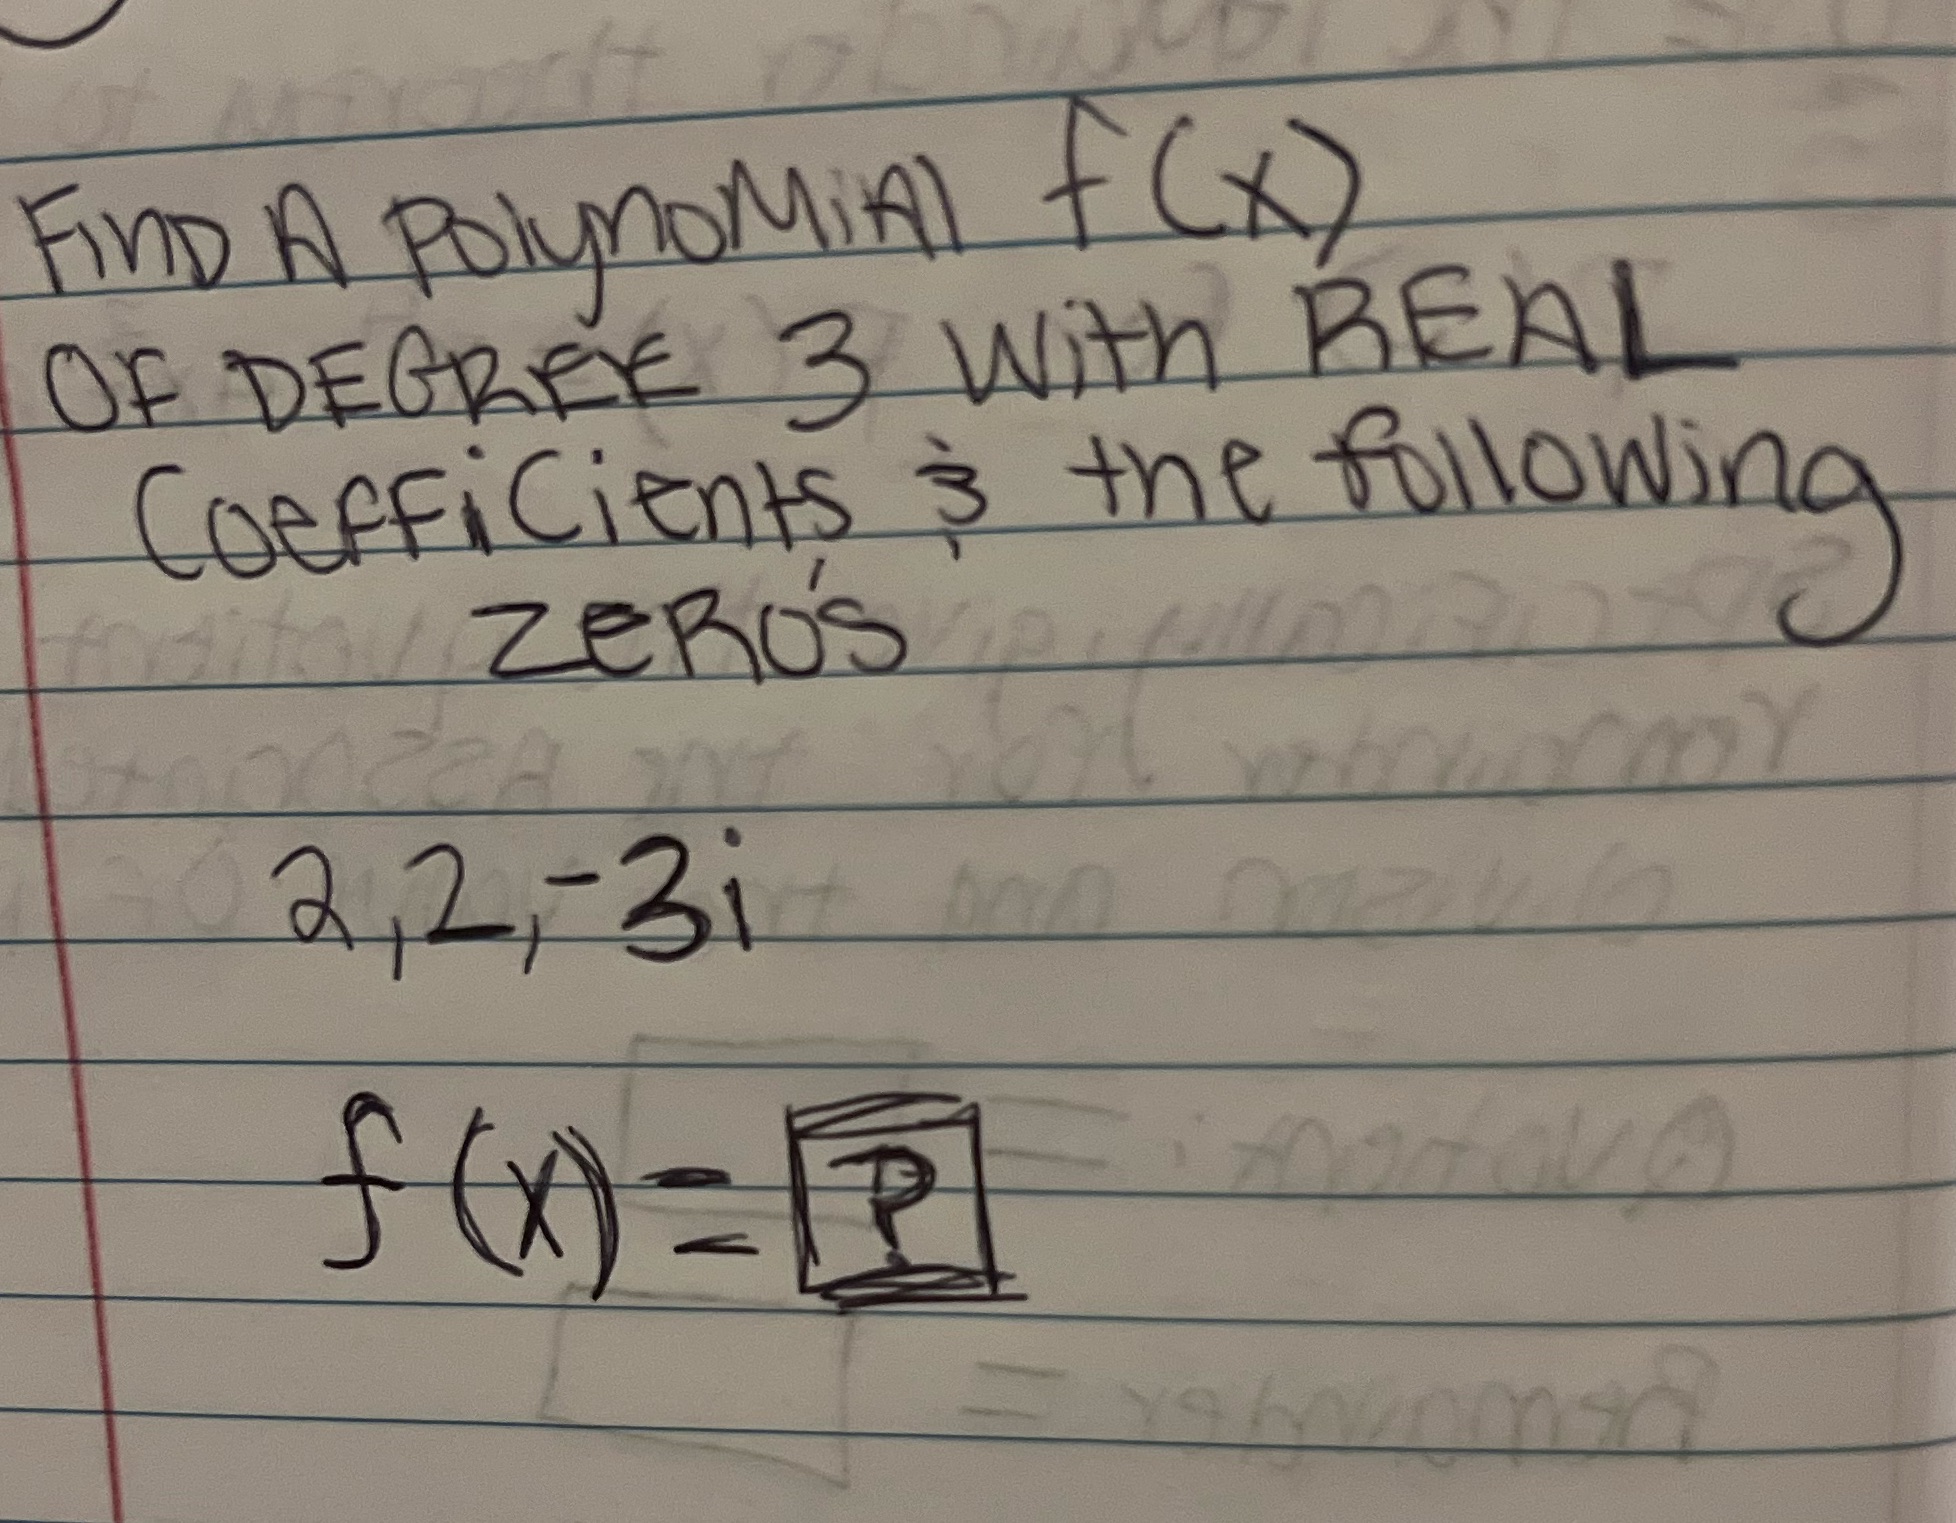 FIND A POLYNOMIAL f(x)
OF DEGREE 3 With REAL
Coefficients & the following
ZERO'S
2,2,-3i
f(x) = ?